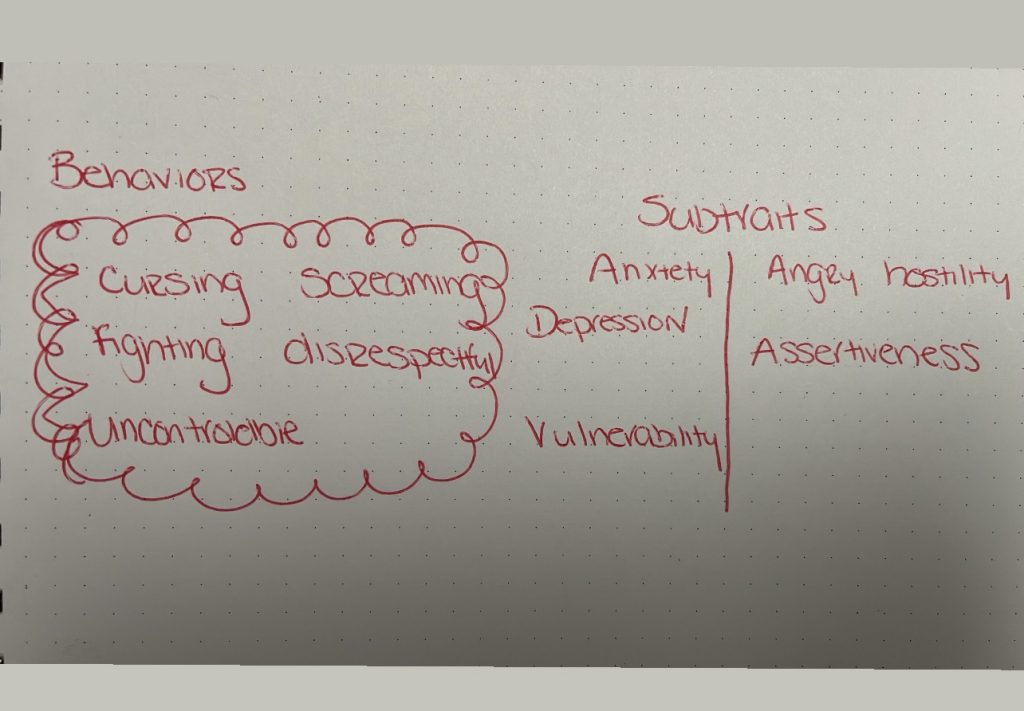 Behaviors
Cursing screaming
fighting disrespectful
uncontrolable
Subtraits
Anxiety Angry hostility
Depression
Assertiveness
Vulnerability